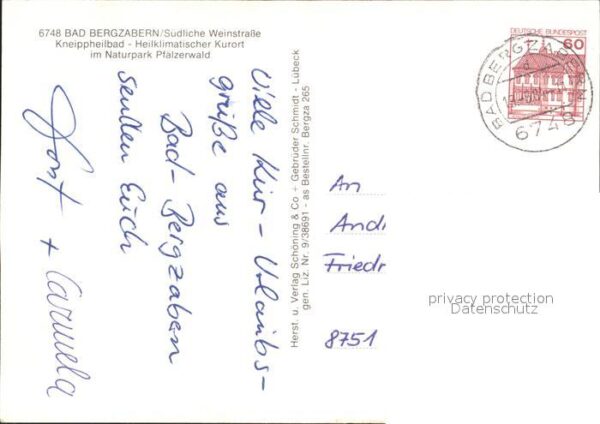 6748 BAD BERGZABERN/Südliche Weinstraße
Kneippheilbad - Heilklimatischer Kurort
im Naturpark Pfälzerwald
Viele Kur - Urlaubs-
grüße aus
Bad - Bergzaben
senden Euch
+ Carmela
Herst. u. Verlag Schöning & Co + Gebrüder Schmidt - Lübeck
gen. Liz. Nr. 9/38691 - as Bestellnr. Bergza 265
DEUTSCHE BUNDESPOST
60
BAD BERGZABERN
6748
An
Andr
Friedr
8751
privacy protection
Datenschutz